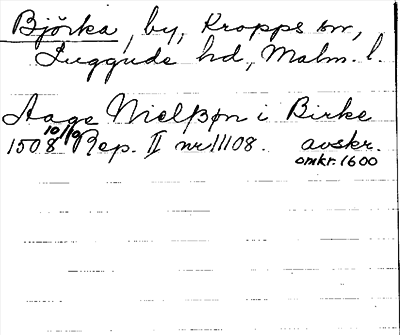 Björka, by, Kropps sn,
Luggude hd, Malm. l.
Aage Nielßøn i Birke
1508 10/10 Rep. II nr 11108. avskr.
omkr. 1600